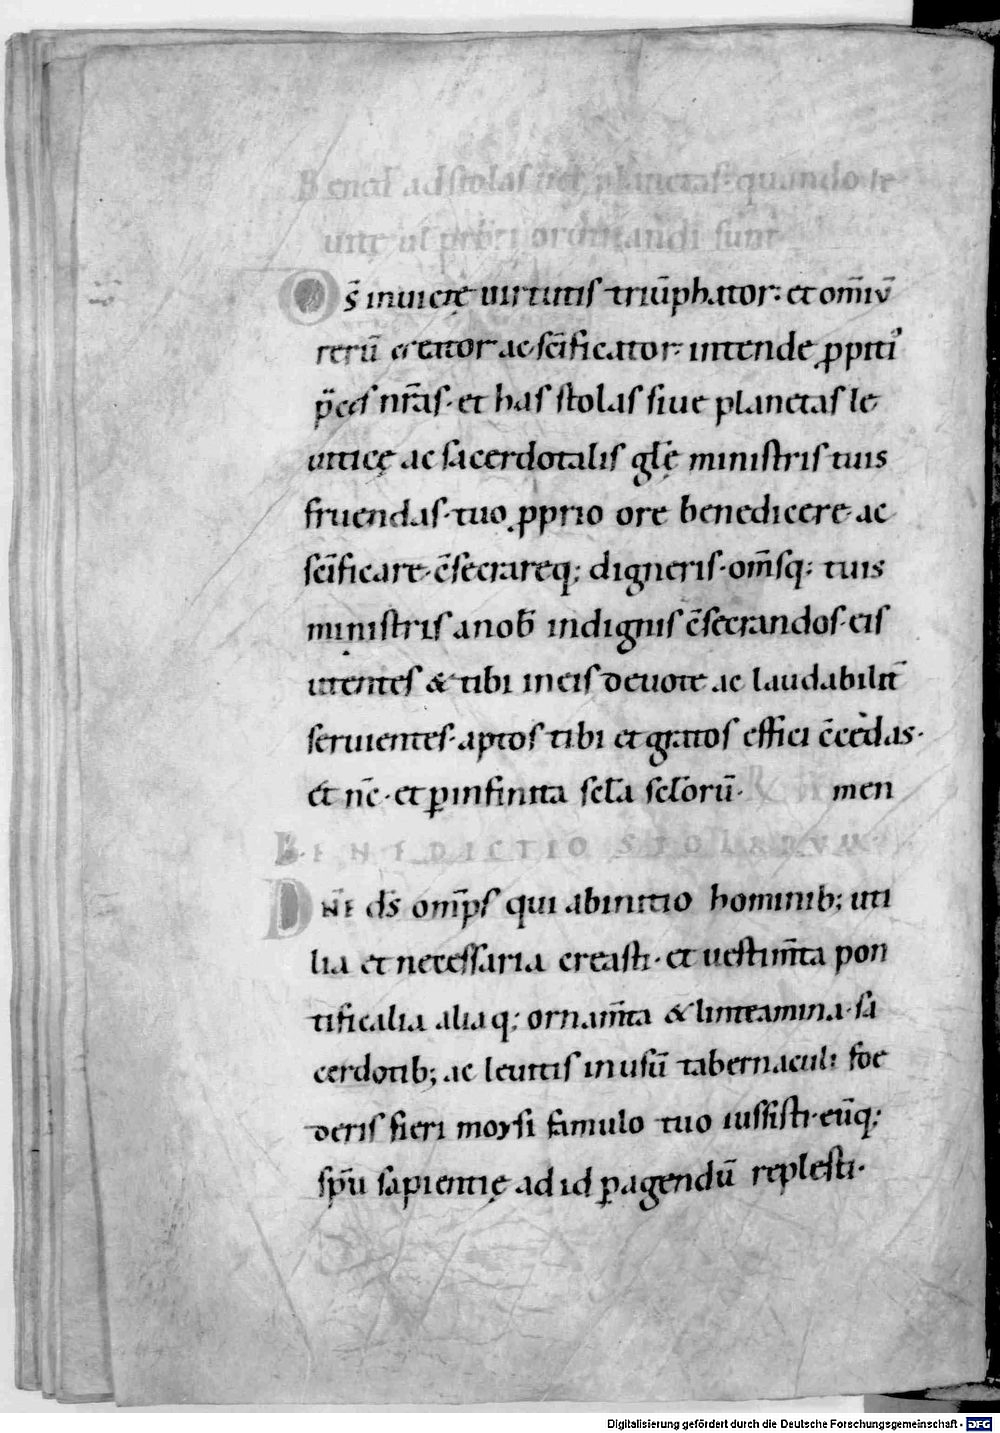 Bened ad stolas uel planetas quando le
uite ul prb̄ri ordinandi sunt
Ds̄ inuictę uirtutis triū̄phator: et om̄iū
rerū creator ac sc̄ificator· intende ꝓpiti᾽
p̄ces nr̄as· et has stolas siue planetas le
uiticę ac sacerdotalis gl̄ę ministris tuis
fruendas· tuo ꝓprio ore benedicere ac
sc̄ificare· c̄secrareq; digneris· om̄sq; tuis
ministris a nob̄ indignis c̄secrandos· eis
utentes & tibi in eis deuote ac laudabilit̄
seruientes· aptos tibi et gratos effici c̄cedas·
et nc̄· et ꝑ infinita scl̄a scl̄orū· men
BENEDICTIO STOLARVM·
DNE ds̄ om̄ps qui ab initio hominib; uti
lia et necessaria creasti· et uestim̄ta pon
tificalia aliaq; ornam̄ta & linteamina· sa
cerdotib; ac leuitis in usū tabernaculi foe
deris fieri moysi famulo tuo iussisti· eūq;
sp̄u sapientię ad id ꝑagendū replesti·
Digitalisierung gefördert durch die Deutsche Forschungsgemeinschaft - DFG